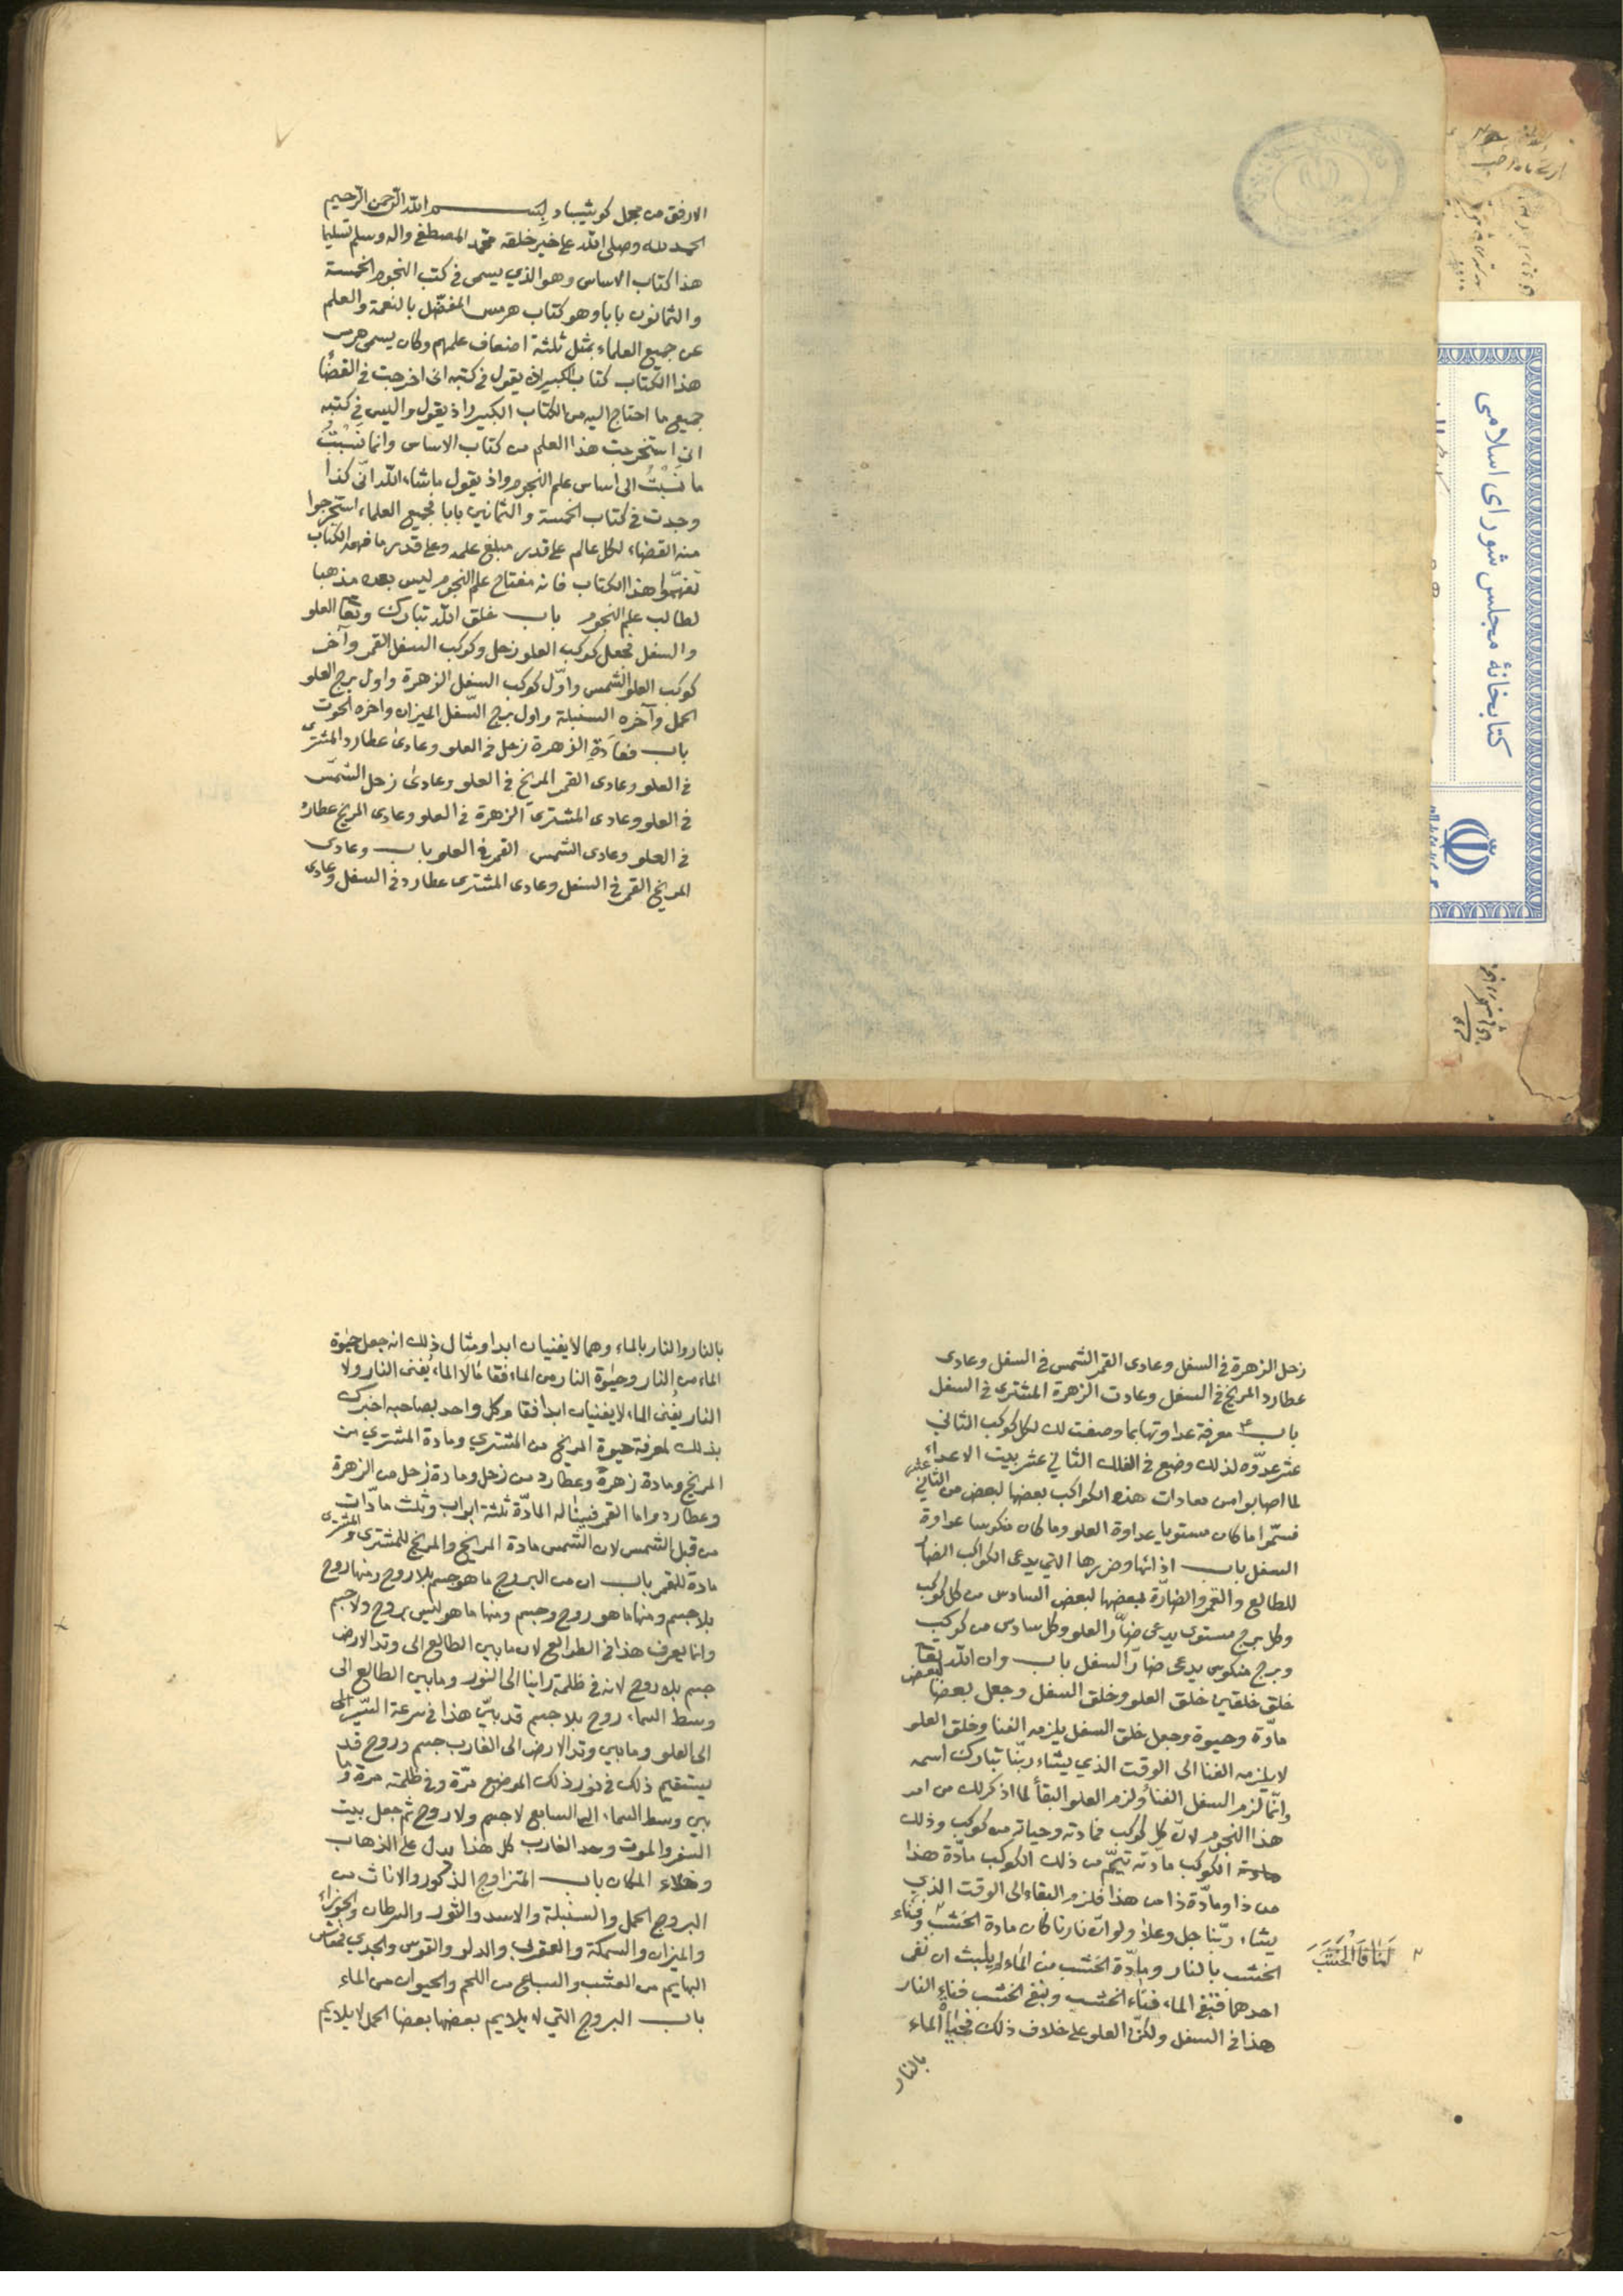 كتابخانهٔ مجلس شورای اسلامی
بسم الله الرحمن الرحيم
الحمد لله وصلى الله على خير خلقه محمد المصطفى واله وسلم تسليما
هذا كتاب الاساس وهو الذي يسمى في كتب النجوم الخمسة
والثمانون بابا وهو كتاب هرمس المفضّل بالنعمة والعلم
عن جميع العلماء بمثل ثلثة اضعاف علمهم وكان يسمى هرمس
هذا الكتاب كتاب الكبير اذ يقول في كتبه انى اخرجت في القضا
جميع ما احتاج اليه من الكتاب الكبير واذ يقول واليس في كتبه
انى استخرجت هذا العلم من كتاب الاساس وانما نَسَبْتُ
ما نَسَبْتُ الى اساس علم النجوم واذ يقول ماشاء الله انّى كذا
وجدت في كتاب الخمسة والثمانين بابا فجميع العلماء استخرجوا
منه القضاء لكل عالم على قدر مبلغ علمه وعلى قدر ما فهمه الكتاب
تفهّموا هذا الكتاب فانه مفتاح علم النجوم ليس بعده مذهبا
لطالب علم النجوم باب خلق الله تبارك وتعا العلو
والسفل فجعل كوكب العلو زحل وكوكب السفل القمر وآخر
كوكب العلو الشمس واوّل كوكب السفل الزهرة واول برج العلو
الحمل وآخره السنبلة واول برج السّفل الميزان واخره الحوت
باب فعادة الزهرة زحل في العلو وعادى عطارد المشترى
في العلو وعادى القمر المريخ في العلو وعادى زحل الشمس
في العلو وعادى المشترى الزهرة في العلو وعادى المريخ عطارد
في العلو وعادى الشمس القمر في العلو باب وعادى
المريخ القمر في السفل وعادى المشترى عطارد في السفل وعادى
زحل الزهرة في السفل وعادى القمر الشمس في السفل وعادى
عطارد المريخ في السفل وعادت الزهرة المشترى في السفل
باب معرفة عداوتها بما وصفت لك لكل كوكب الثاني
عشر عدوّه لذلك وضع في الفلك الثاني عشر بيت الاعداء
لما اصابوا من معادات هذه الكواكب بعضها لبعض من الثاني عشر
فسمّوا ما كان مستويا عداوة العلو وما كان منكوسا عداوة
السفل باب اذائها وضررها التي يدعى الكواكب الضارّ
للطالع والقمر والضارّة بعضها لبعض السادس من كل كوكب
وكل برج مستوى يدعى ضارّ العلو وكل سادس من كوكب
وبرج منكوس يدعى ضارّ السفل باب وان الله تعا
خلق خلقين خلق العلو وخلق السفل وجعل بعضها لبعض
مادّة وحيوة وجعل خلق السفل يلزمه الفنا وخلق العلو
لا يلزمه الفنا الى الوقت الذي يشاء ربّنا تبارك اسمه
وانّما لزم السفل الفنا ولزم العلو البقا لما اذكر لك من امر
هذا النجوم لان كل كوكب فمادته وحياته من كوكب وذلك
الكوكب مادته من ذلك الكوكب مادّة هذا
من ذا ومادّة ذا من هذا فلزم البقاء الى الوقت الذي
يشاء ربّنا جل وعلا ولو انّ نارنا كان مادة الخشب وفناء
الخشب بالنار ومادّة الخشب من الماء لم يلبث ان نفى
احدهما فنفى الماء فناء الخشب ونفى الخشب فناء النار
هذا في السفل ولكن العلو على خلاف ذلك الماء
بالنار
بالنار والنار بالماء وهما لا يفنيان ابدا ومثال ذلك انه جعل حيوة
الماء من النار وحيوة النار من الماء فقاما لا الماء يُفنى النار ولا
النار يُفنى الماء لا يفنيان ابدا فقام كل واحد بصاحبه اخبرك
بذلك لمعرفة حيوة المريخ من المشتري ومادة المشتري من
المريخ ومادة زهرة وعطارد من زحل ومادة زحل من الزهرة
وعطارد واما القمر له المادّة ثلثة ابواب وثلث مادّات
من قبل الشمس لان الشمس مادة المريخ والمريخ للمشترى والمشترى
مادة للقمر باب ان من البروج ما هو جسم بلا روح ومنها روح
بلا جسم ومنها ما هو روح وجسم ومنها ما هو ليس بروح ولا جسم
وانما يعرف هذا في الطوالع لان ما بين الطالع الى وتد الارض
جسم بلا روح لانه في ظلمة الى النور وما بين الطالع الى
وسط السماء روح بلا جسم قد بيّن هذا في سرعة السّير الى
الى العلو وما بين وتد الارض الى الغارب جسم وروح قد
يستقيم ذلك في نور ذلك الموضع مرّة وفي ظلمته مرة وما
بين وسط السماء الى السابع لا جسم ولا روح ثم جعل بيت
السفر والموت وحد الغارب كل هذا يدل على الذهاب
وخلاء المكان باب المتزاوج الذكور والاناث من
البروج الحمل والسنبلة والاسد والثور والسرطان والجوزاء
والميزان والسمكة والعقرب والدلو والقوس والجدي فمعاش
البهايم من العشب والسباع من اللحم والحيوان من الماء
باب البروج التي لا يلايم بعضها بعضا الحمل لا يلايم